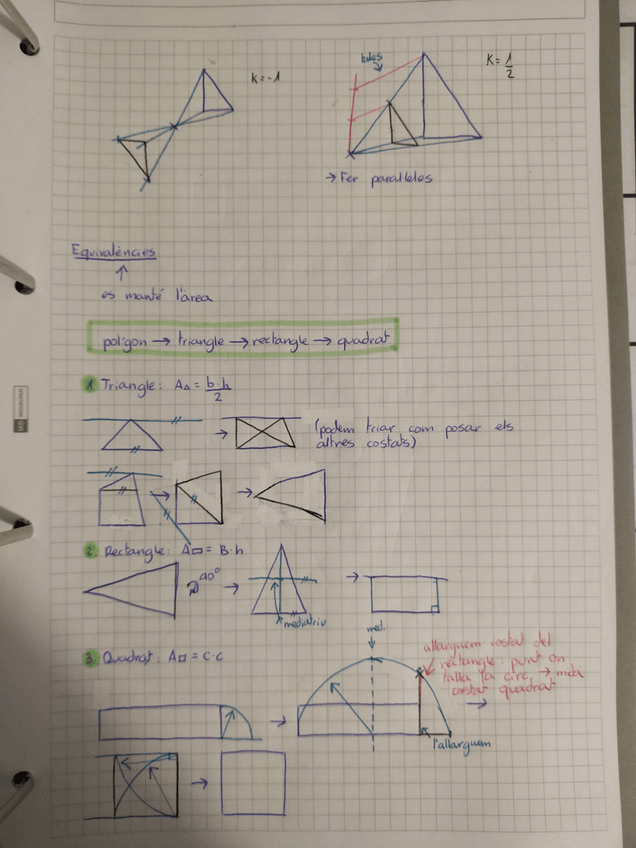 K=-1
tales
K=1/2
→ Fer paral·leles
Equivalències
↑
es manté l'àrea
polígon → triangle → rectangle → quadrat
1. Triangle: A△ = b·h/2
(podem triar com posar els
altres costats)
2. Rectangle: A▭ = B·h
90°
mediatriu
3. Quadrat: A□ = c·c
med.
allarguem costat del
rectangle: punt on
talla la circ. → mida
costat quadrat
l'allarguem